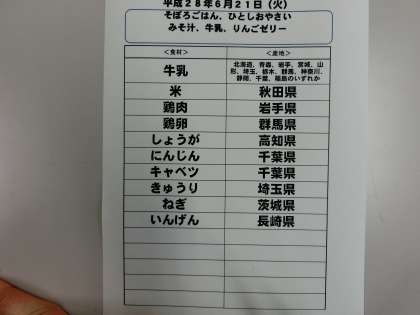 平成28年6月21日(火)
そぼろごはん、ひとしおやさい
みそ汁、牛乳、りんごゼリー
<食材> <産地>
牛乳 北海道、青森、岩手、宮城、山
形、埼玉、栃木、群馬、神奈川、
静岡、千葉、福島のいずれか
米 秋田県
鶏肉 岩手県
鶏卵 群馬県
しょうが 高知県
にんじん 千葉県
キャベツ 千葉県
きゅうり 埼玉県
ねぎ 茨城県
いんげん 長崎県